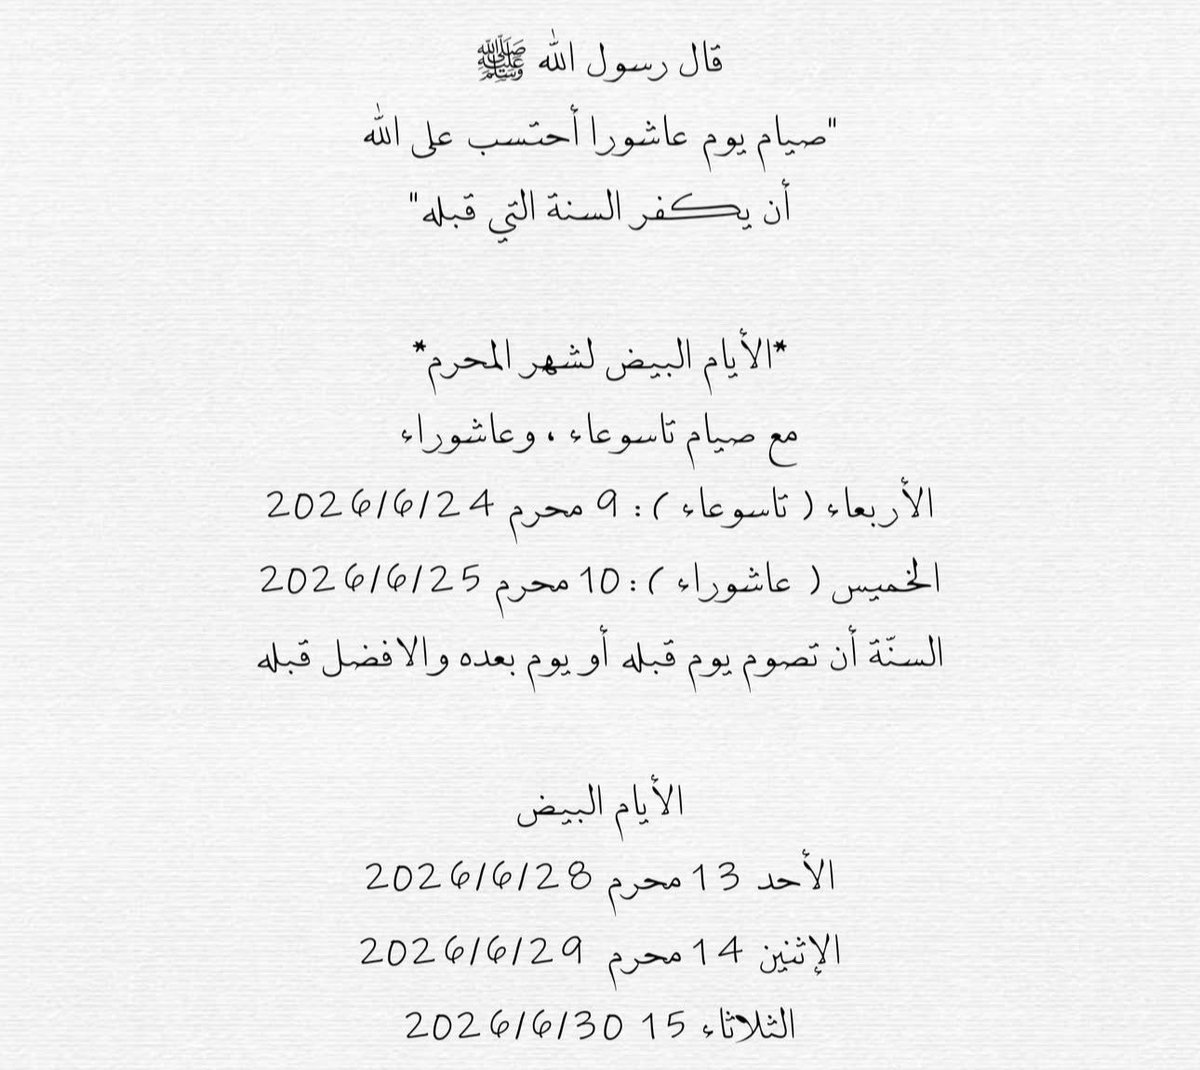 قال رسول الله ﷺ
"صيام يوم عاشورا أحتسب على الله
أن يكفر السنة التي قبله"
*الأيام البيض لشهر المحرم*
مع صيام تاسوعاء ، وعاشوراء
الأربعاء ( تاسوعاء ) : 9 محرم 2026/6/24
الخميس ( عاشوراء ) : 10 محرم 2026/6/25
السنّة أن تصوم يوم قبله أو يوم بعده والافضل قبله
الأيام البيض
الأحد 13 محرم 2026/6/28
الإثنين 14 محرم 2026/6/29
الثلاثاء 15 2026/6/30